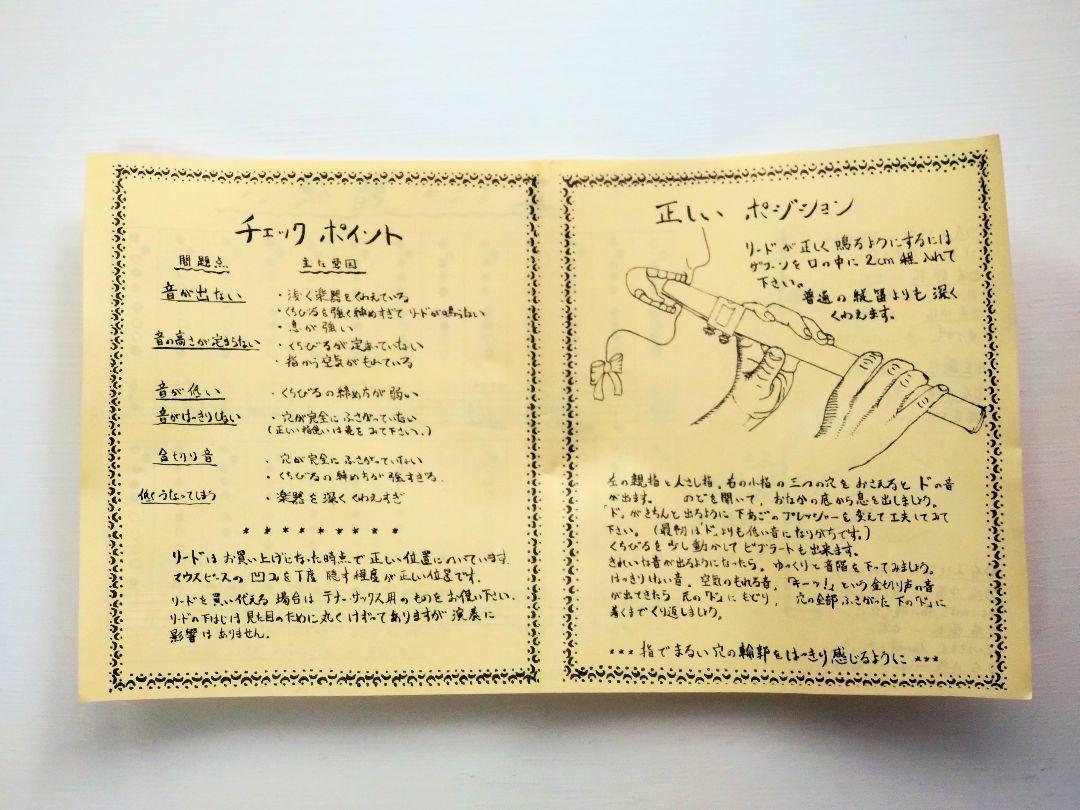 チェック ポイント
問題点 主な要因
音が出ない ・浅く楽器をくわえている
・くちびるを強く締めすぎて リードが鳴らない
・息が強い
音の高さが定まらない ・くちびるが定まっていない
・指から空気がもれている
音が低い ・くちびるの締め方が弱い
音がはっきりしない ・穴が完全にふさがっていない
(正しい指使いは表をみて下さい。)
金切り音 ・穴が完全にふさがっていない
・くちびるの締め方が強すぎる
低くうなってしまう ・楽器を深くくわえすぎ
* * * * * * * * *
リードはお買い上げになった時点で正しい位置についています
マウスピースの凹みを丁度隠す程度が正しい位置です。
リードを買い代える場合はテナーサックス用のものをお使い下さい.
リードの下はじは見た目のために丸くけずってありますが演奏に
影響はありません。
正しい ポジション
リードが正しく鳴るようにするには
ザフーンを口の中に2cm程入れて
下さい。
普通の縦笛よりも深く
くわえます。
左の親指と人さし指、右の小指の三つの穴をおさえるとドの音
が出ます。 のどを開いて、おなかの底から息を出しましょう。
「ド」がきちんと出るように下あごのプレッシャーを変えて工夫してみて
下さい。(最初は「ド」よりも低い音になりがちです。)
くちびるを少し動かしてビブラートも出来ます。
きれいな音が出るようになったら、ゆっくりと音階を下ってみましょう。
はっきりしない音、空気のもれる音、「キーッ!」という金切り声の音
が出てきたら 元の「ド」にもどり、 穴の全部ふさがった下の「ド」に
着くまでくり返しましょう。
*** 指でまるい穴の輪郭をはっきり感じるように ***